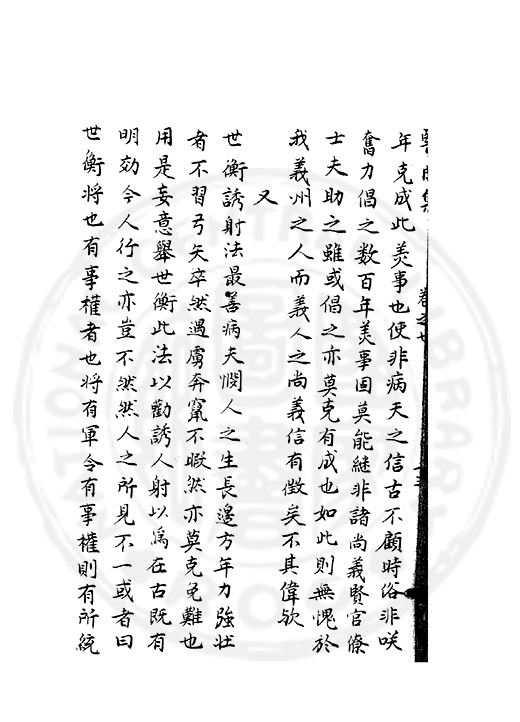 年克成此美事也使非病夫之信古不顧時俗非咲
奮力倡之數百年美事固莫能継非諸尚義賢官僚
士夫助之雖或倡之亦莫克有成也如此則無愧於
我義州之人而義人之尚義信有徴矣不其偉欤
又
世衡誘射法最善病夫憫人之生長邊方年力強状
者不習弓矢卒然遇虜奔竄不暇然亦莫克免難也
用是妄意舉世衡此法以勸誘人射以為在古既有
明効今人行之亦豈不然然人之所見不一或者曰
世衡将也有事權者也将有軍令有事權則有所統